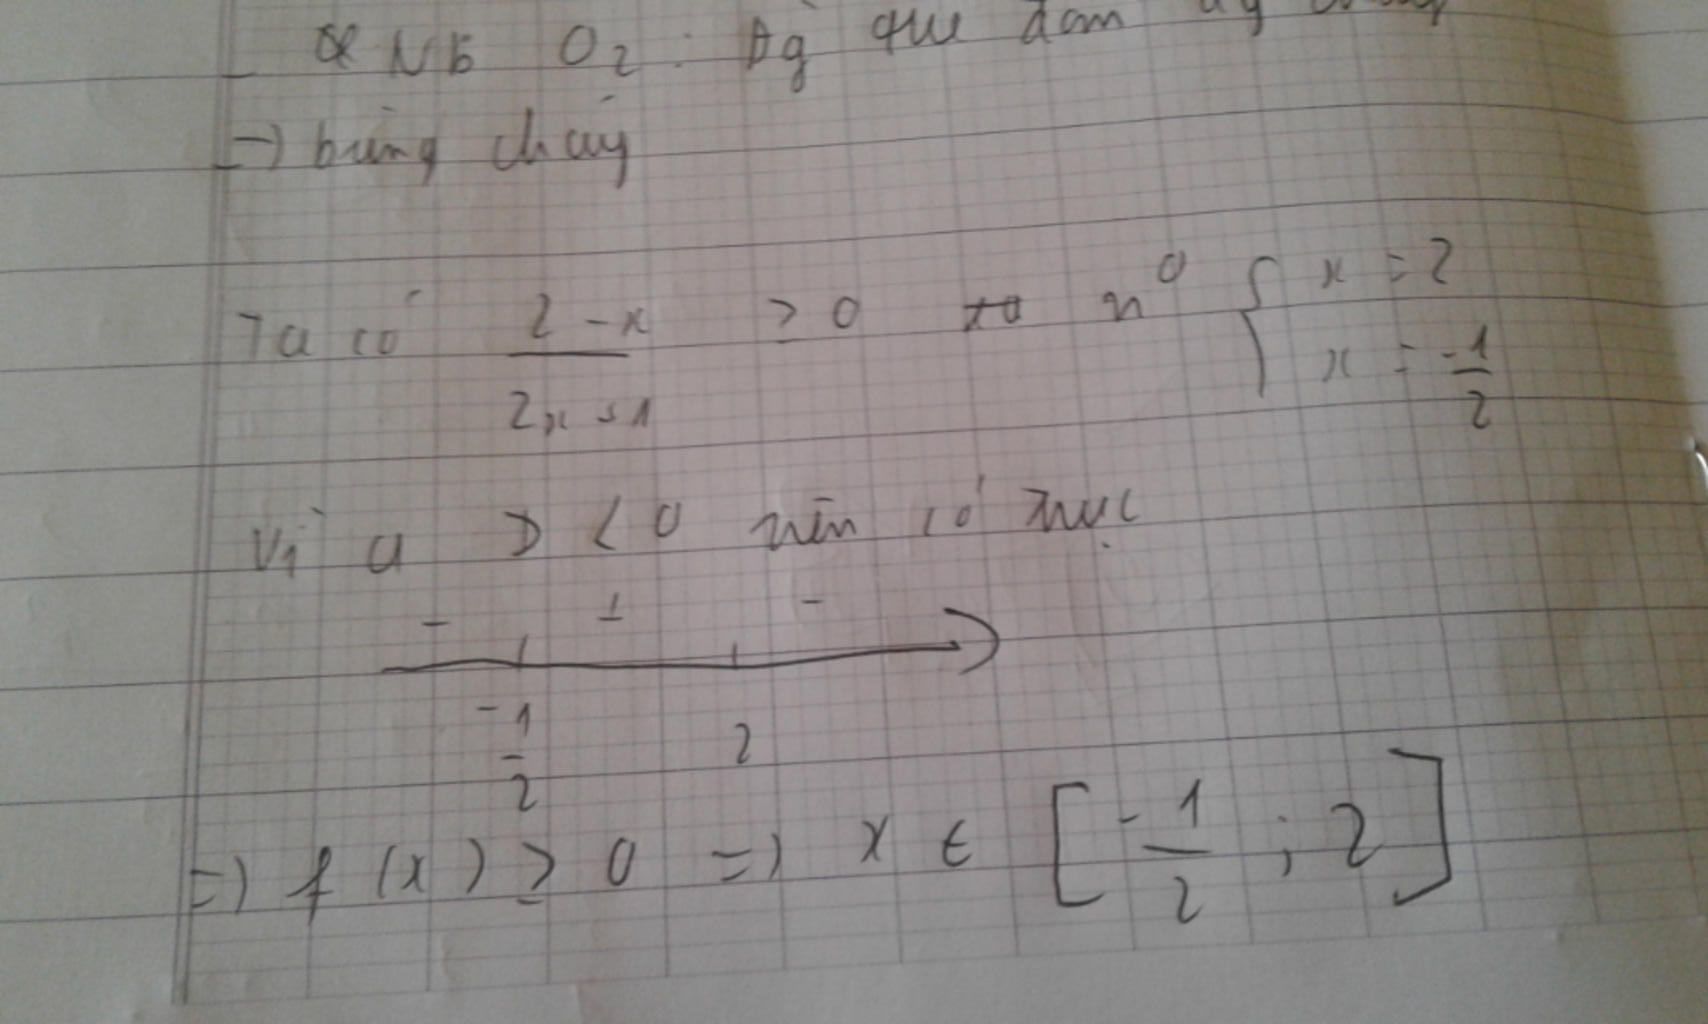 NB O2: Dg que đóm
=) bùng cháy
Ta có 2 - x / 2x + 1 ≥ 0 n⁰ { x = 2
x = -1/2
Vì a < 0 nên có trục
- + -
-1/2 2
=) f(x) ≥ 0 =) x ∈ [-1/2 ; 2]